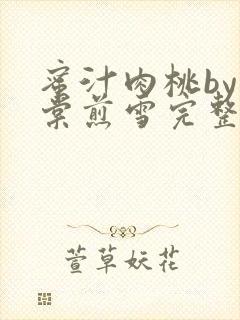 蜜汁肉桃by
棠煎雪完整
萱草妖花